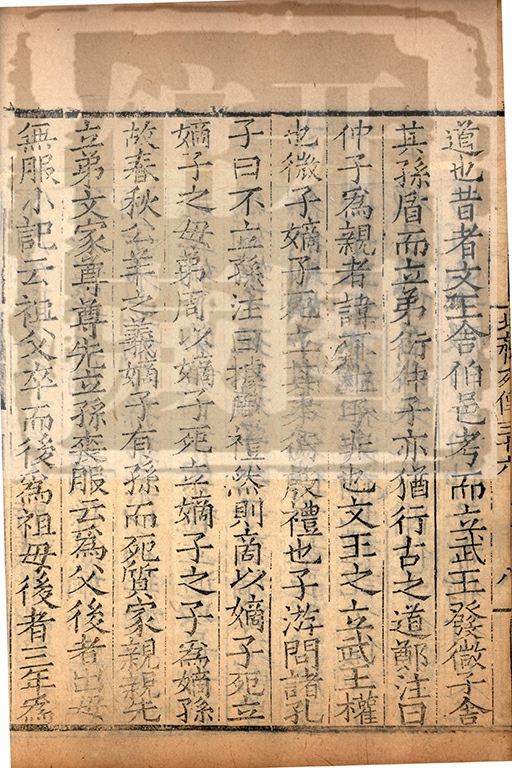 道也昔者文王舍伯邑考而立武王發微子舍
其孫盾而立弟衍仲子亦猶行古之道鄭注曰
仲子爲親者諱耳立子非也文王之立武王權
也微子嫡子死立其弟衍殷禮也子游問諸孔
子曰不立孫注曰據周禮然則商以嫡子死立
嫡子之母弟周以嫡子死立嫡子之子爲嫡孫
故春秋公羊之義嫡子有孫而死質家親親先
立弟文家尊尊先立孫喪服云爲父後者出母
無服小記云祖父卒而後爲祖母後者三年爲
北齊列傳三十六
八